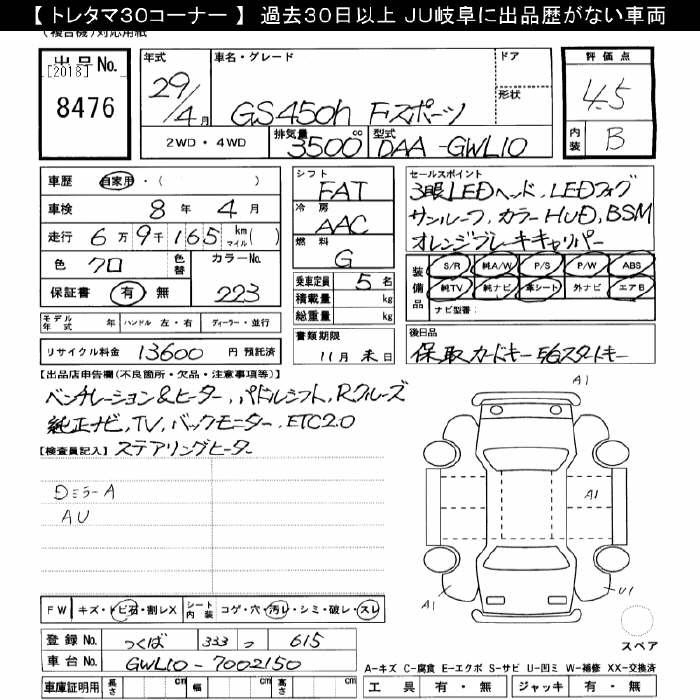 【 トレタマ30コーナー 】 過去30日以上 JU岐阜に出品歴がない車両
(複合機)対応用紙
出品No.
[2018]
8476
年式
29/4月
車名・グレード
GS450h Fスポーツ
ドア
形状
評価点
4.5
内装 B
2WD・4WD
排気量 3500 cc
型式 DAA-GWL10
車歴 自家用・( )
車検 8年 4月
走行 6万9千165 km マイル( )
色 クロ 色替 カラーNo. 223
保証書 有 無
シフト
FAT
冷房
AAC
燃料
G
乗車定員 5名
積載量 kg
総重量 kg
セールスポイント
3眼LEDヘッド、LEDフォグ
サンルーフ、カラーHUD、BSM
オレンジブレーキキャリパー
装備品
S/R 純A/W P/S P/W ABS
純TV 純ナビ 革シート 外ナビ エアB
ナビ型番:
モデル年式 年 ハンドル 左・右 ディーラー・並行
リサイクル料金 13600 円 預託済
書類期限
11月末日
後日品
保、取、カードキー、
スタートキー
【出品店申告欄(不良箇所・欠品・注意事項等)】
ベンチレーション&ヒーター、パドルシフト、Rクルーズ
純正ナビ、TV、バックモニター、ETC2.0
ステアリングヒーター
【検査員記入】
DミラーA
AU
A1
A1
A1
U1
FW キズ・トビ石・割レX シート内装 コゲ・穴・汚レ・シミ・破レ・スレ
スペア
登録No. つくば 333 つ 615
車台No. GWL10-7002150
車庫証明用 長さ cm 幅 cm 高さ cm
A-キズ C-腐食 E-エクボ S-サビ U-凹ミ W-補修 XX-交換済
工具 有・無 ジャッキ 有・無